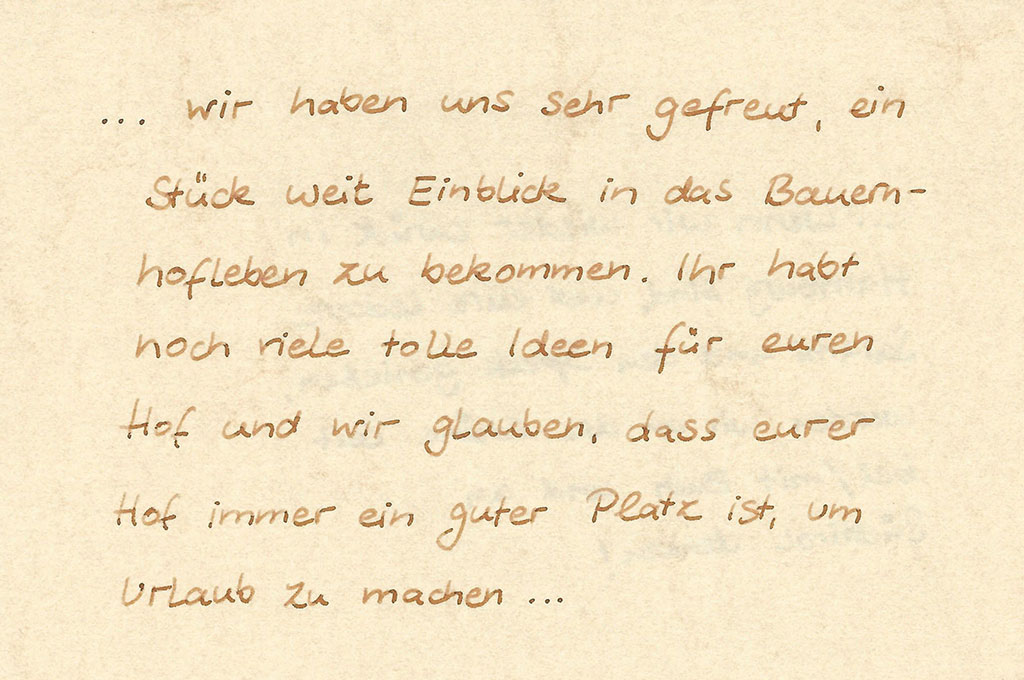 ... wir haben uns sehr gefreut, ein
Stück weit Einblick in das Bauern-
hofleben zu bekommen. Ihr habt
noch viele tolle Ideen für euren
Hof und wir glauben, dass eurer
Hof immer ein guter Platz ist, um
Urlaub zu machen ...